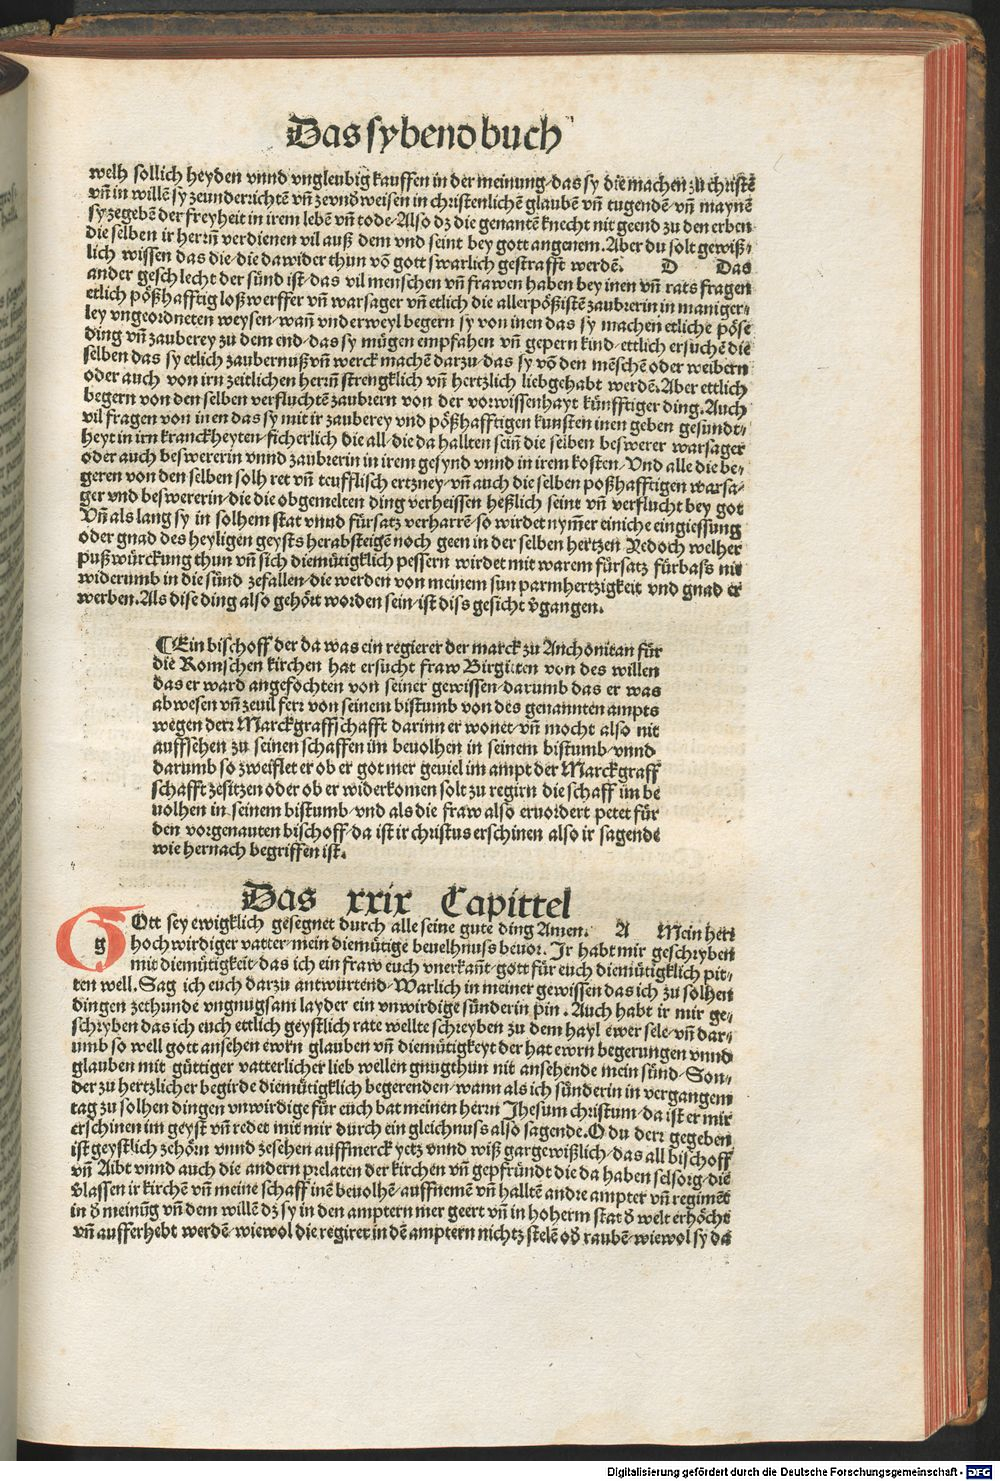 Das sybend buch
welh sollich heyden vnnd vngleubig kauffen in der meinung/das sy die machen zu christē
vn̄ in willē sy zeunderrichtē vn̄ zevnd̕weisen in christenlichē glaubē vn̄ tugendē/vn̄ maynē
sy zegebē der freyheit in irem lebē vn̄ tode/Also dz die genantē knecht nit geend zu den erben
die selben ir herrn̄ verdienen vil auß dem vnd seint bey gott angenem. Aber du solt gewiß-
lich wissen das die/die dawider thun vō gott swarlich gestrafft werdē. D Das
ander geschlecht der sünd ist/das vil menschen vn̄ frawen haben bey inen vn̄ rats fragen
etlich pößhafftig loßwerffer vn̄ warsager vn̄ etlich die allerpößistē zaubrerin in maniger-
ley vngeordneten weysen/wan̄ vnderweyl begern sy von inen das sy machen etliche pöse
ding vn̄ zauberey zu dem end/das sy mügen empfahen vn̄ gepern kind/ettlich ersuchē die
selben das sy etlich zaubernuß vn̄ werck machē darzu/das sy vō den mēschē oder weibern
oder auch von irn zeitlichen herrn̄ strengklich vn̄ hertzlich liebgehabt werdē. Aber ettlich
begern von den selben verfluchtē zaubrern von der vorwissenhayt künfftiger ding. Auch
vil fragen von inen das sy mit ir zauberey vnd pößhafftigen kunsten inen geben gesundt-
heyt in irn kranckheyten/sicherlich die all/die da hallten sein̄ die selben beswerer warsager
oder auch beswererin vnnd zaubrerin in irem gesynd vnnd in irem kosten/Vnd alle die be-
geren von den selben solh ret vn̄ teufflisch ertzney/vn̄ auch die selben poßhafftigen warsa-
ger vnd beswererin/die die obgemelten ding verheissen heßlich seint vn̄ verflucht bey got
Vn̄ als lang sy in solhem stat vnnd fürsatz verharrē/so wirdet nym̄er einiche eingiessung
oder gnad des heyligen geysts herabsteigē noch geen in der selben hertzen Yedoch welher
puß würckung thun vn̄ sich diemütigklich pessern wirdet mit warem fürsatz fürbass nit
widerumb in die sünd zefallen/die werden von meinem sun parmhertzigkeit vnd gnad er
werben. Als dise ding also gehört worden sein/ist diss gesicht v̄gangen.
¶ Ein bischoff der da was ein regierer der marck zu Anchonitan für
die Romschen kirchen hat ersucht fraw Birgitten von des willen
das er ward angefochten von seiner gewissen/darumb das er was
abwesen vn̄ zeuil ferr von seinem bistumb von des genannten ampts
wegen derr Marckgraffschafft darinn er wonet/vn̄ mocht also nit
auffsehen zu seinen schaffen im beuolhen in seinem bistumb/vnnd
darumb so zweiflet er ob er got mer geuiel im ampt der Marckgraff
schafft zesitzen oder ob er widerkomen solt zu regirn die schaff im be
uolhen in seinem bistumb/vnd als die fraw also eruordert petet für
den vorgenauten bischoff/da ist ir christus erschinen also ir sagende
wie hernach begriffen ist.
Das xxix Capittel
GOtt sey ewigklich gesegnet durch alle seine gute ding Amen. A Mein herr
hochwirdiger vatter/mein diemütige beuelhnuss beuor. Ir habt mir geschryben
mit diemütigkeit/das ich ein fraw euch vnerkan̄t/gott für euch diemütigklich pit-
ten well. Sag ich euch darzu antwurtend/Warlich in meiner gewissen das ich zu solhen
dingen zethunde vngnugsam layder ein vnwirdige sünderin pin. Auch habt ir mir ge-
schryben das ich euch ettlich geystlich rate wellte schreyben zu dem hayl ewer sele/vn̄ dar-
umb so well gott ansehen ewrn glauben vn̄ diemütigkeyt der hat ewrn begerungen vnnd
glauben mit güttiger vatterlicher lieb wellen gnugthun nit ansehende mein sünd/Son-
der zu hertzlicher begirde diemütigklich begerenden/wann als ich sünderin in vergangem
tag zu solhen dingen vnwirdige für euch bat meinen herrn Jhesum christum/da ist er mir
erschinen im geyst vn̄ redet mit mir durch ein gleichnuss also sagende. O du derr gegeben
ist geystlich zehörn vnnd zesehen auffmerck yetz vnnd wiß gargewißlich/das all bischoff
vn̄ Aibt vnnd auch die andern prelaten der kirchen vn̄ gepfründt die da haben selsorg/die
v̄lassen ir kirchē vn̄ meine schaff inē beuolhē/auffnemē vn̄ halltē andre ampter vn̄ regimēt
in d̕ meinūg vn̄ dem willē dz sy in den amptern mer geert vn̄ in hoherm stat d̕ welt erhöcht
vn̄ aufferhebt werdē/wiewol die regirer in dē amptern nichtz stelē od̕ raubē/wiewol sy da
Digitalisierung gefördert durch die Deutsche Forschungsgemeinschaft - DFG